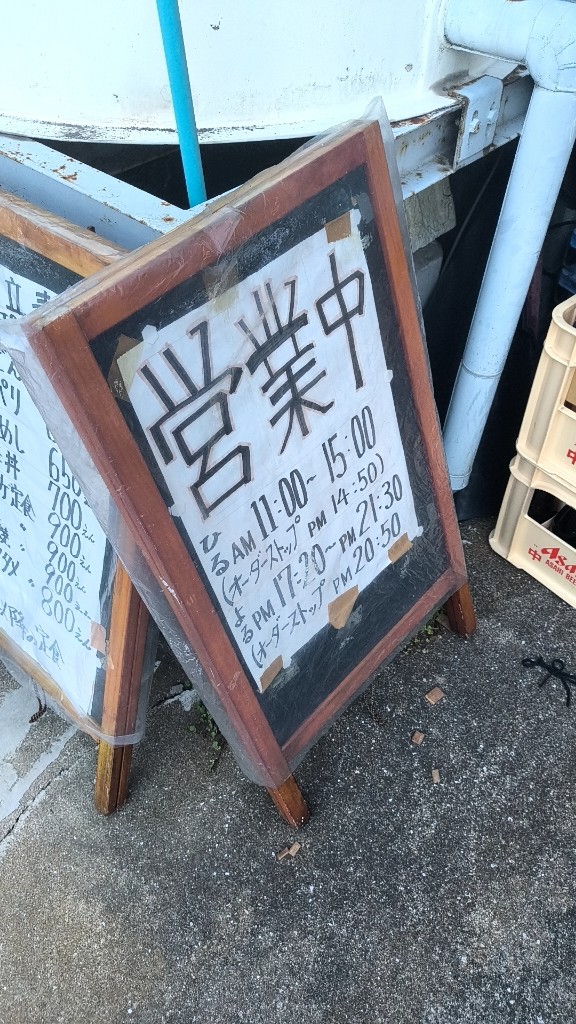 営業中
ひる AM 11:00~15:00
(オーダーストップ PM 14:50)
よる PM 17:20~PM 21:30
(オーダーストップ PM 20:50
立
ペリ
めし
丼 650
定食 700えん
900えん
〃 900えん
〃 900えん
〃 800えん
定食
Asahi
中 ASAHI BEER